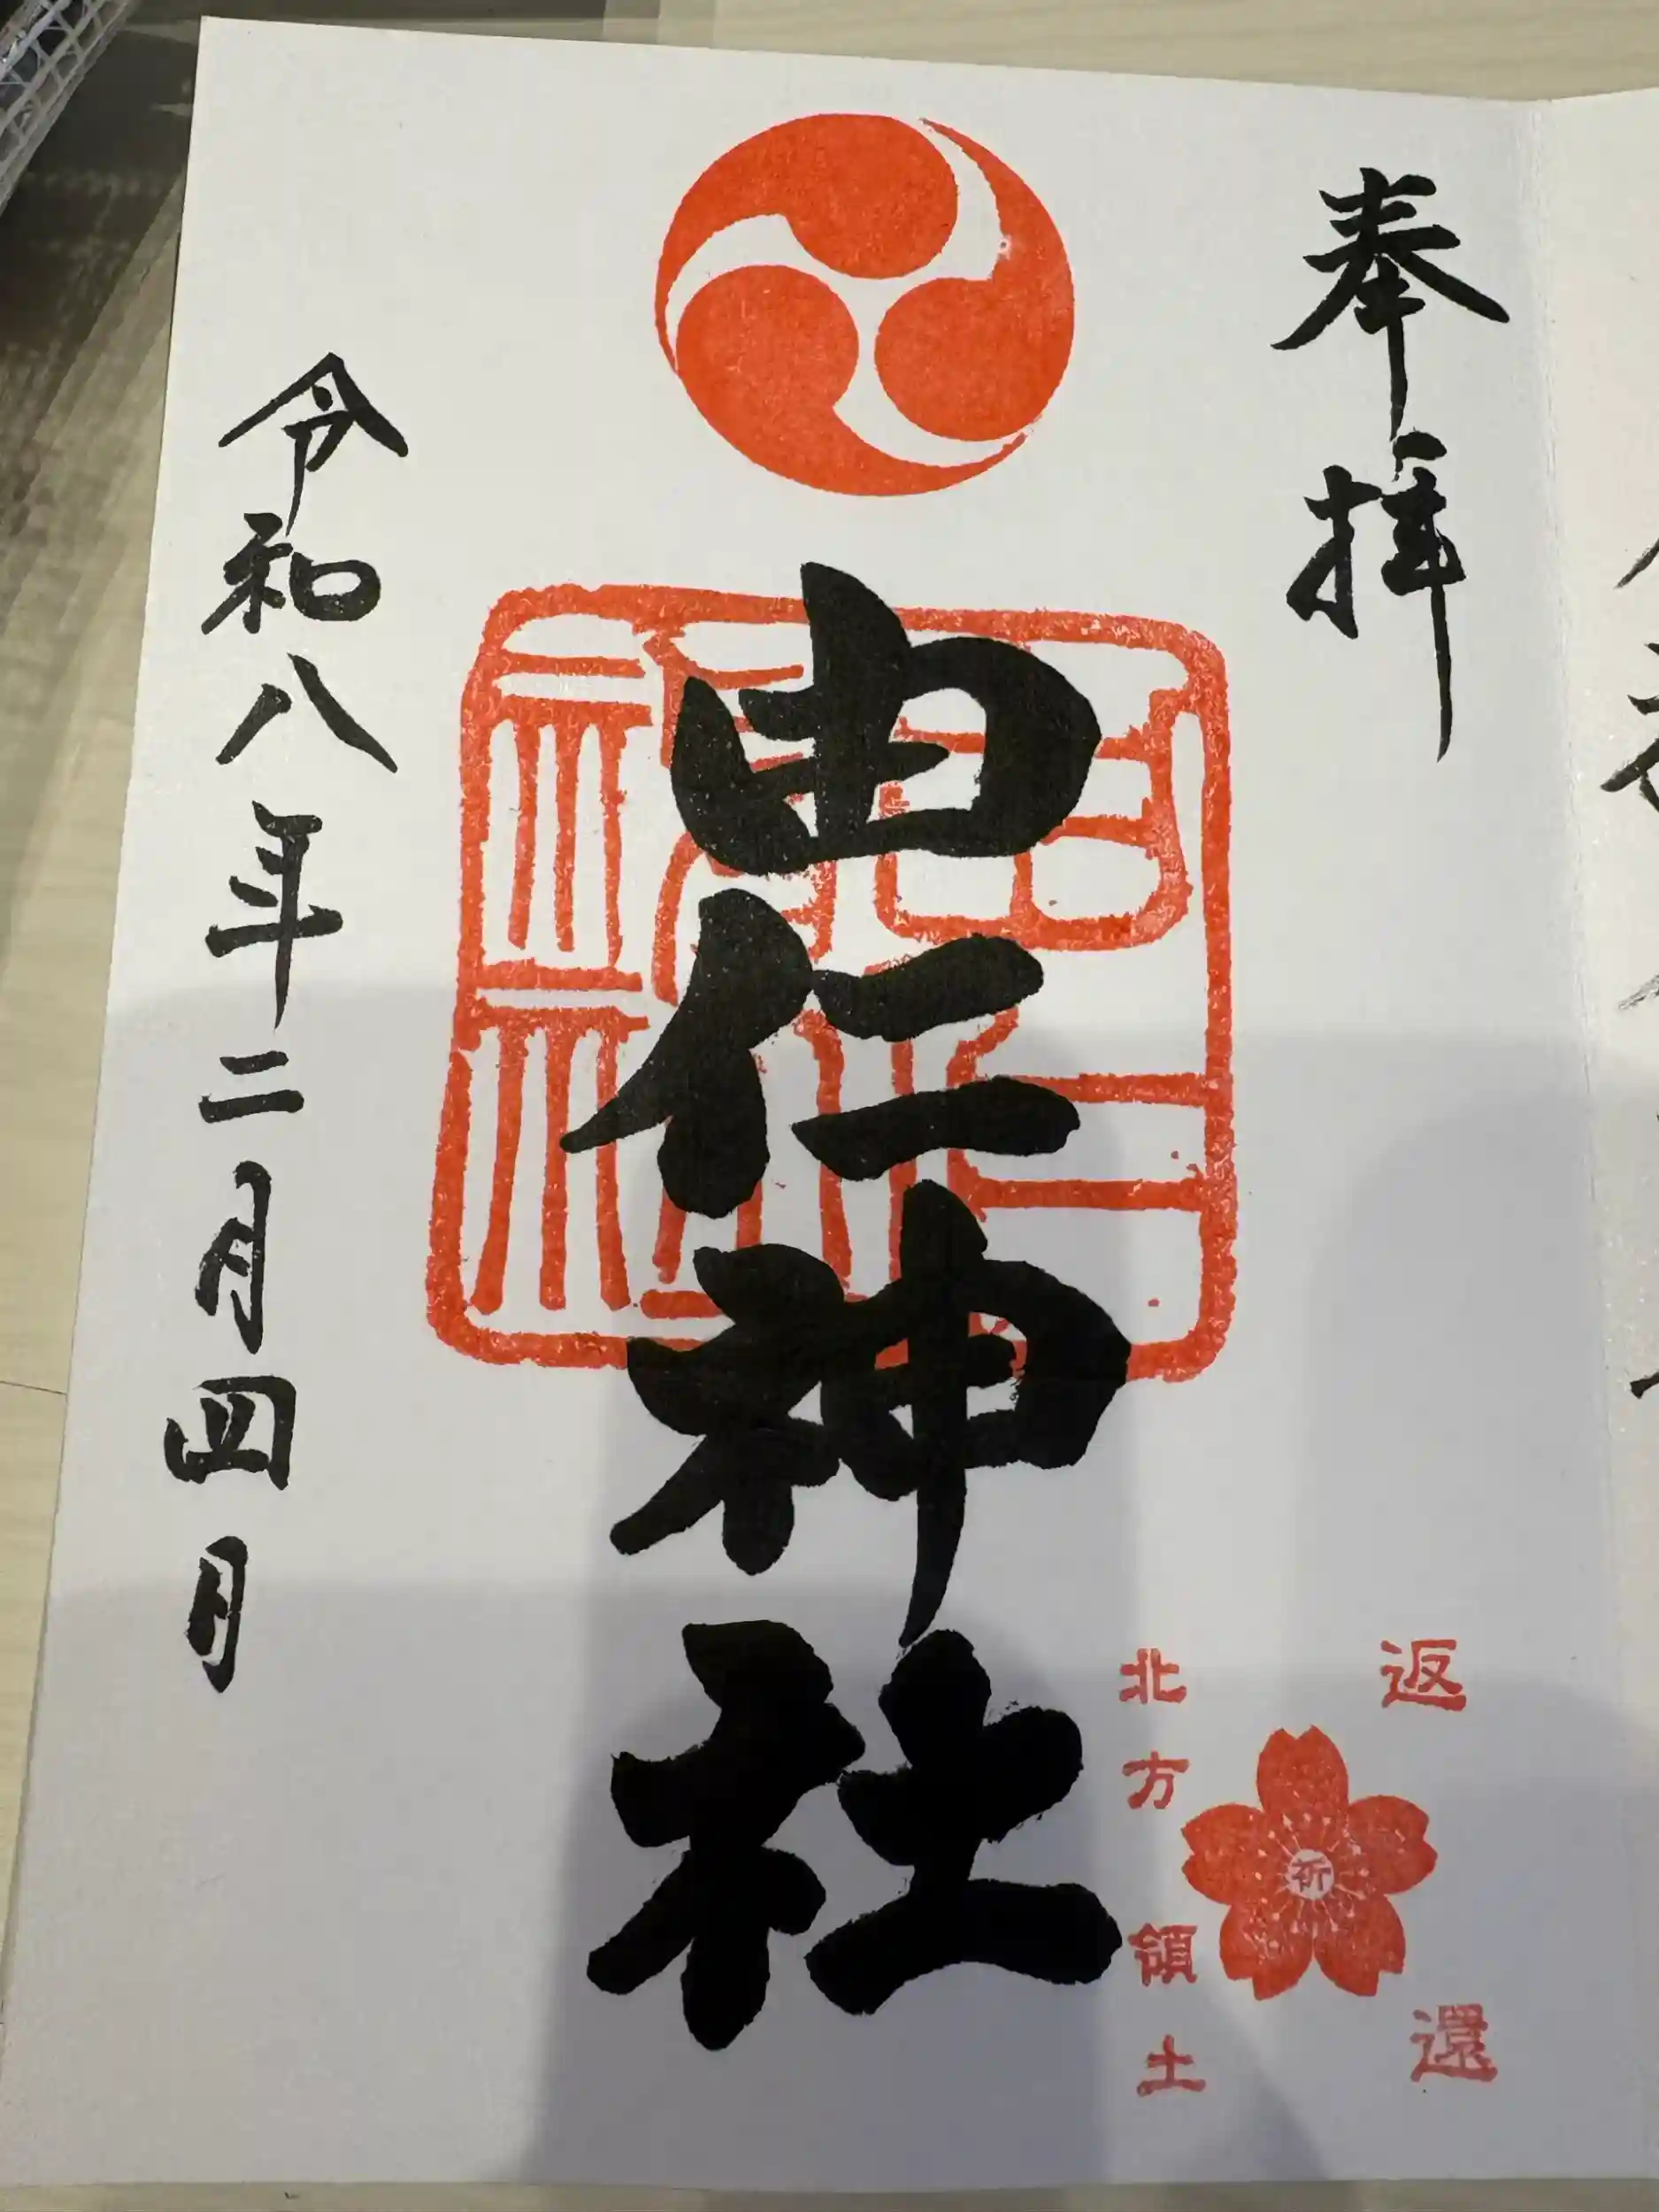 奉拝
由仁神社
令和八年二月四月
返還
北方領土
祈